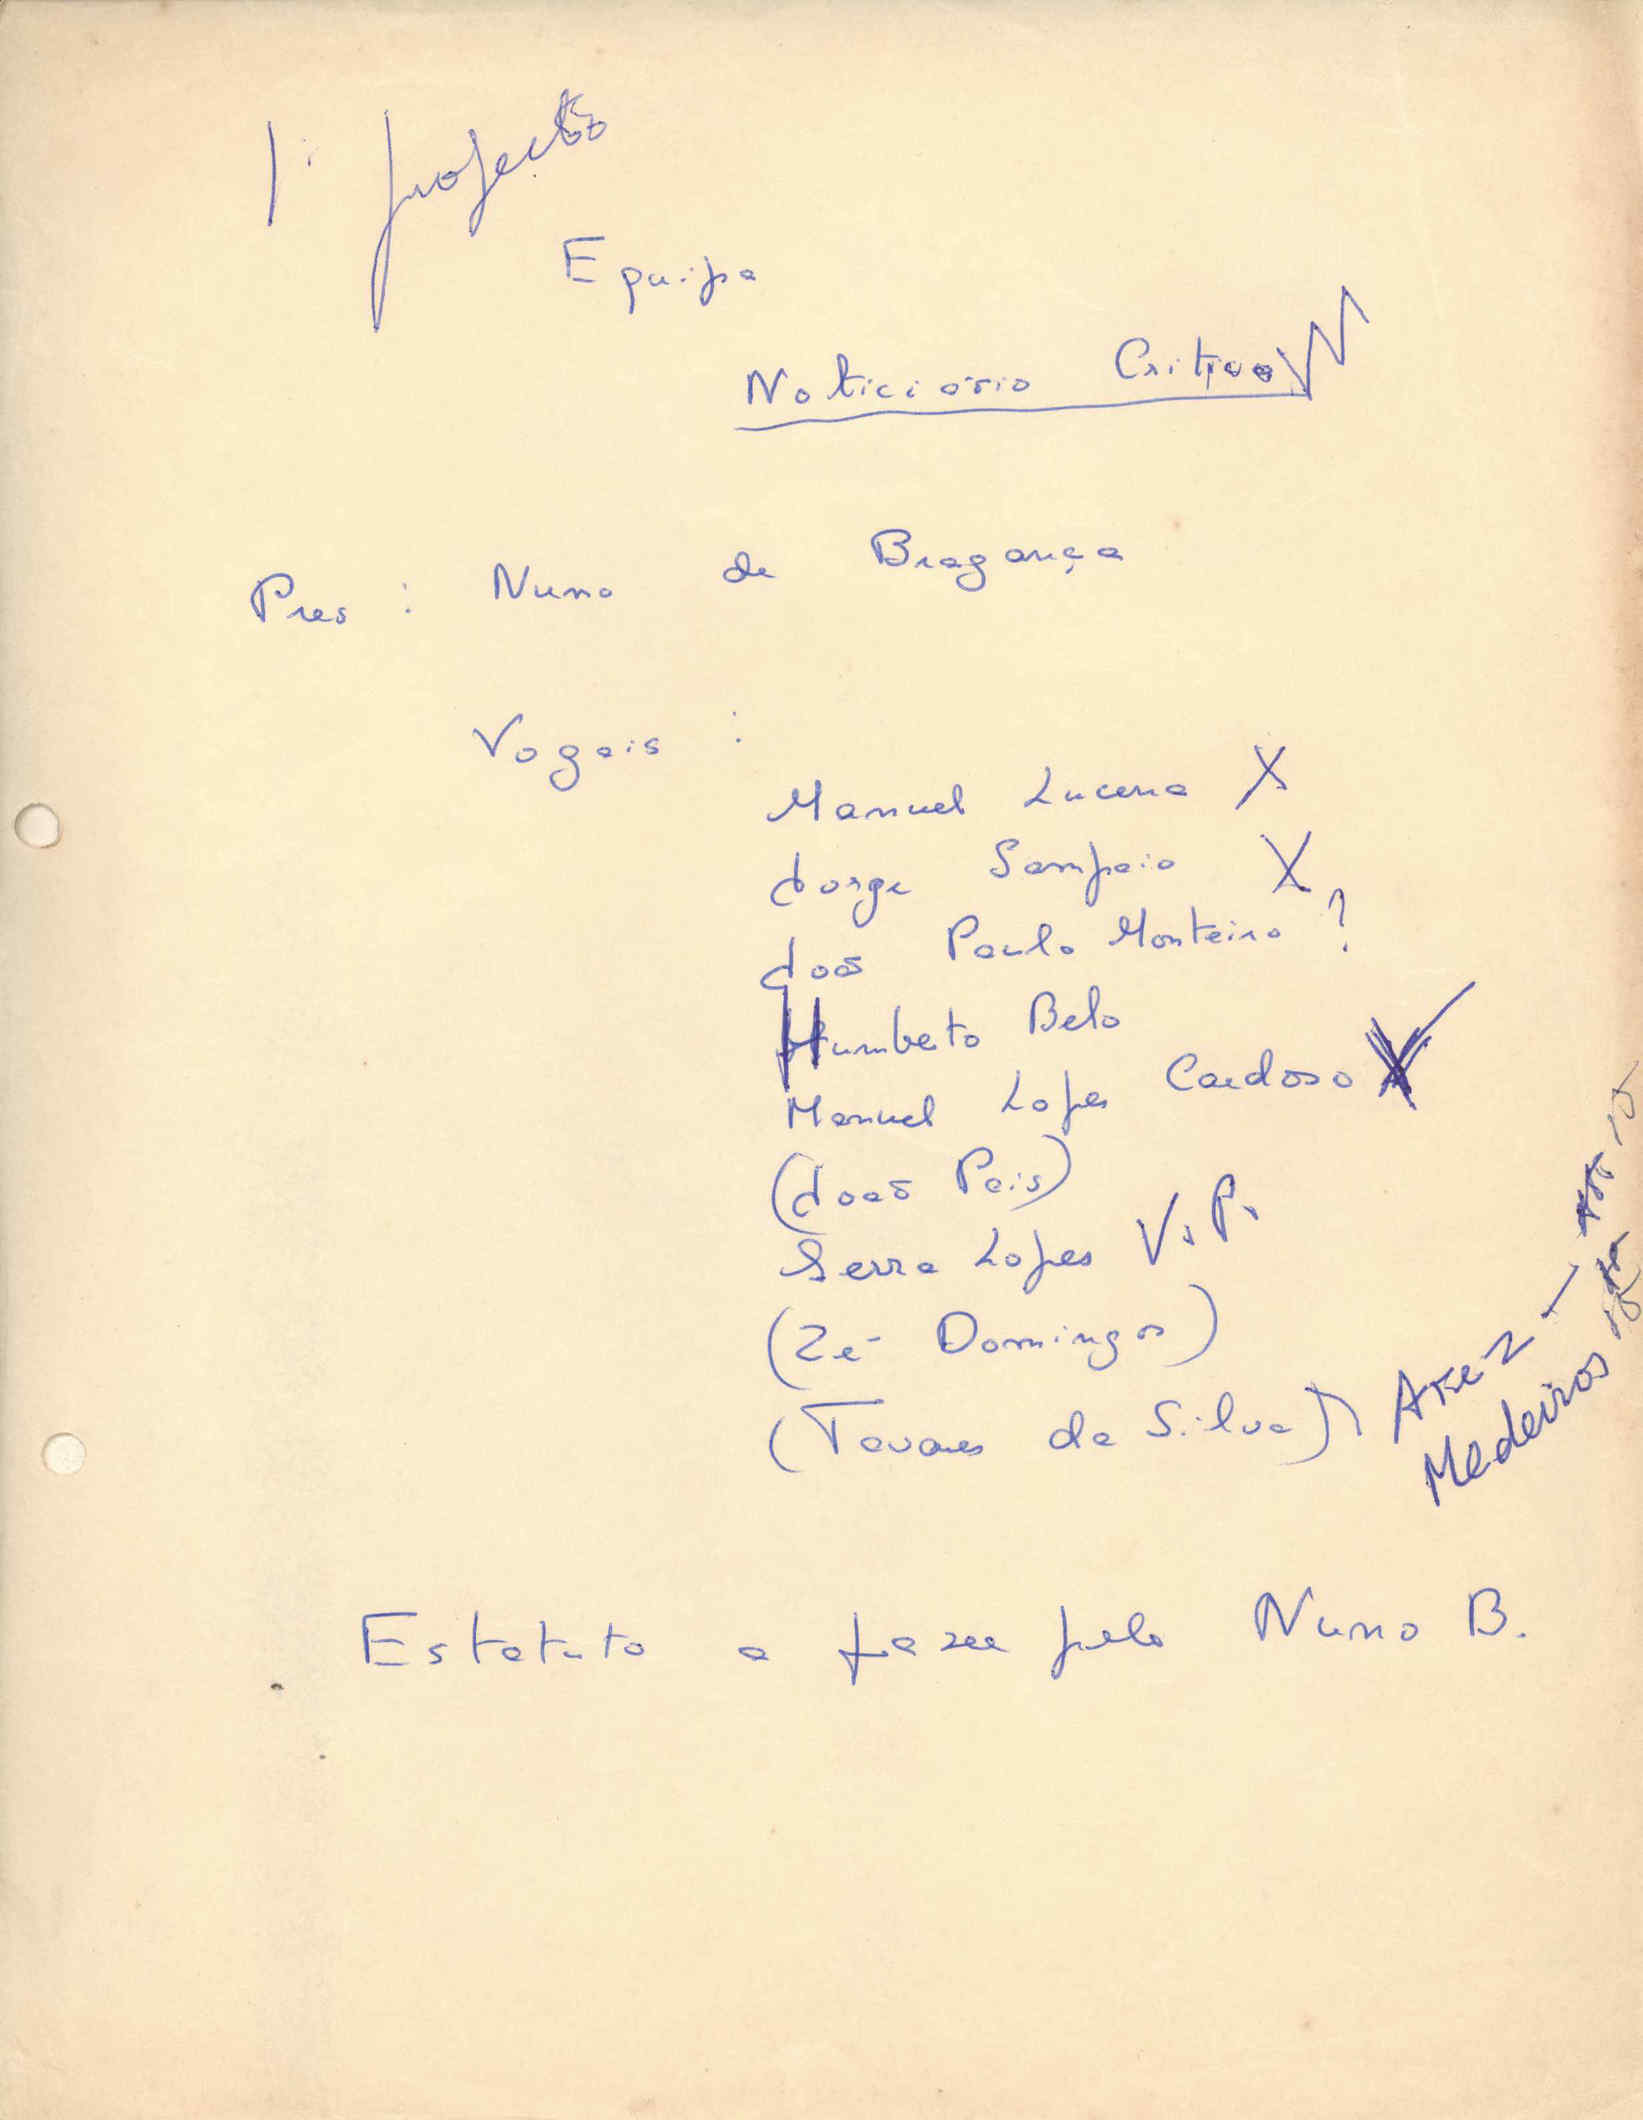 1º projecto
Equipa
Noticiário Crítico
Pres : Nuno de Bragança
Vogais :
Manuel Lucena X
Jorge Sampaio X
João Paulo Monteiro ?
Humberto Belo
Manuel Lopes Cardoso X
(João Pais)
Serra Lopes V. P.
(Zé Domingos)
(Tavares da Silva)
Arez —
Medeiros
Estatuto a fazer pelo Nuno B.